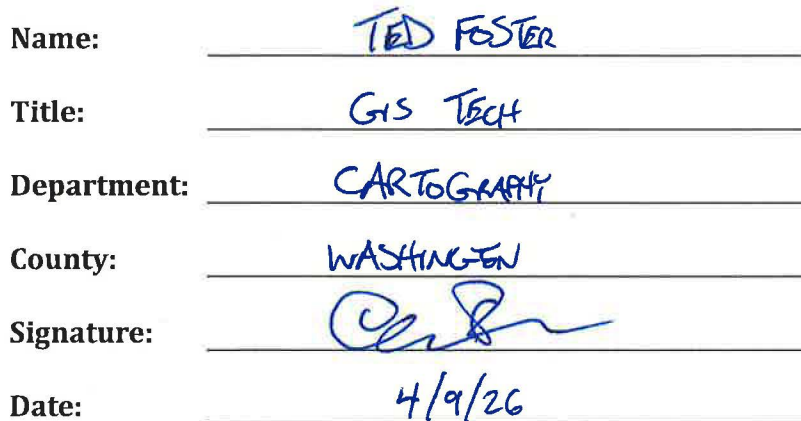 Name: TED FOSTER
Title: GIS TECH
Department: CARTOGRAPHY
County: WASHINGTON
Signature:
Date: 4/9/26